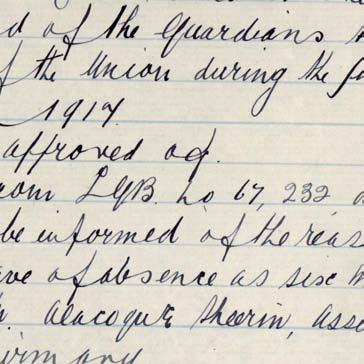 d of the Guardians
of the Union during the
1917.
approved of.
from LGB. no 67,232
be informed of the reas
ave of absence as six
h. Alacoque Sheerin, Asso
firm any